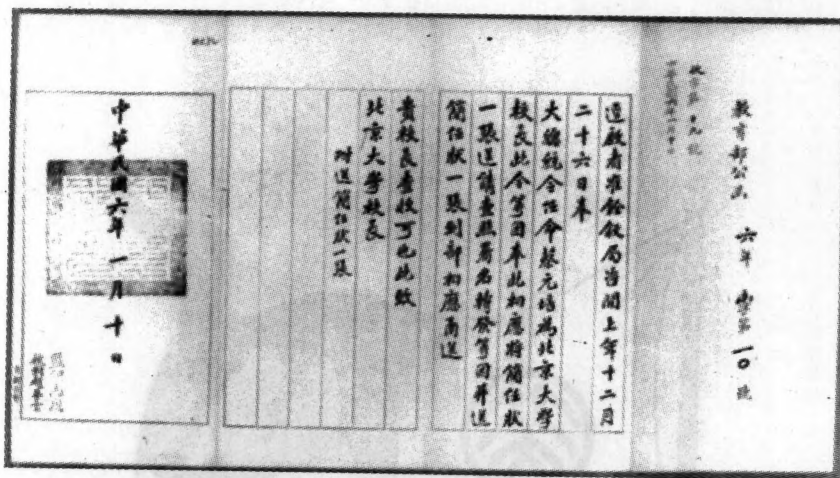 教育部公函 六年 字第一〇號
逕啟者准銓敘局咨開上年十二月
二十六日奉
大總統令任命蔡元培為北京大學
校長此令等因奉此相應將簡任狀
一張送請查照署名轉發等因并送
簡任狀一張到部相應函送
貴校長查收可也此致
北京大學校長
附送簡任狀一張
中華民國六年一月十日